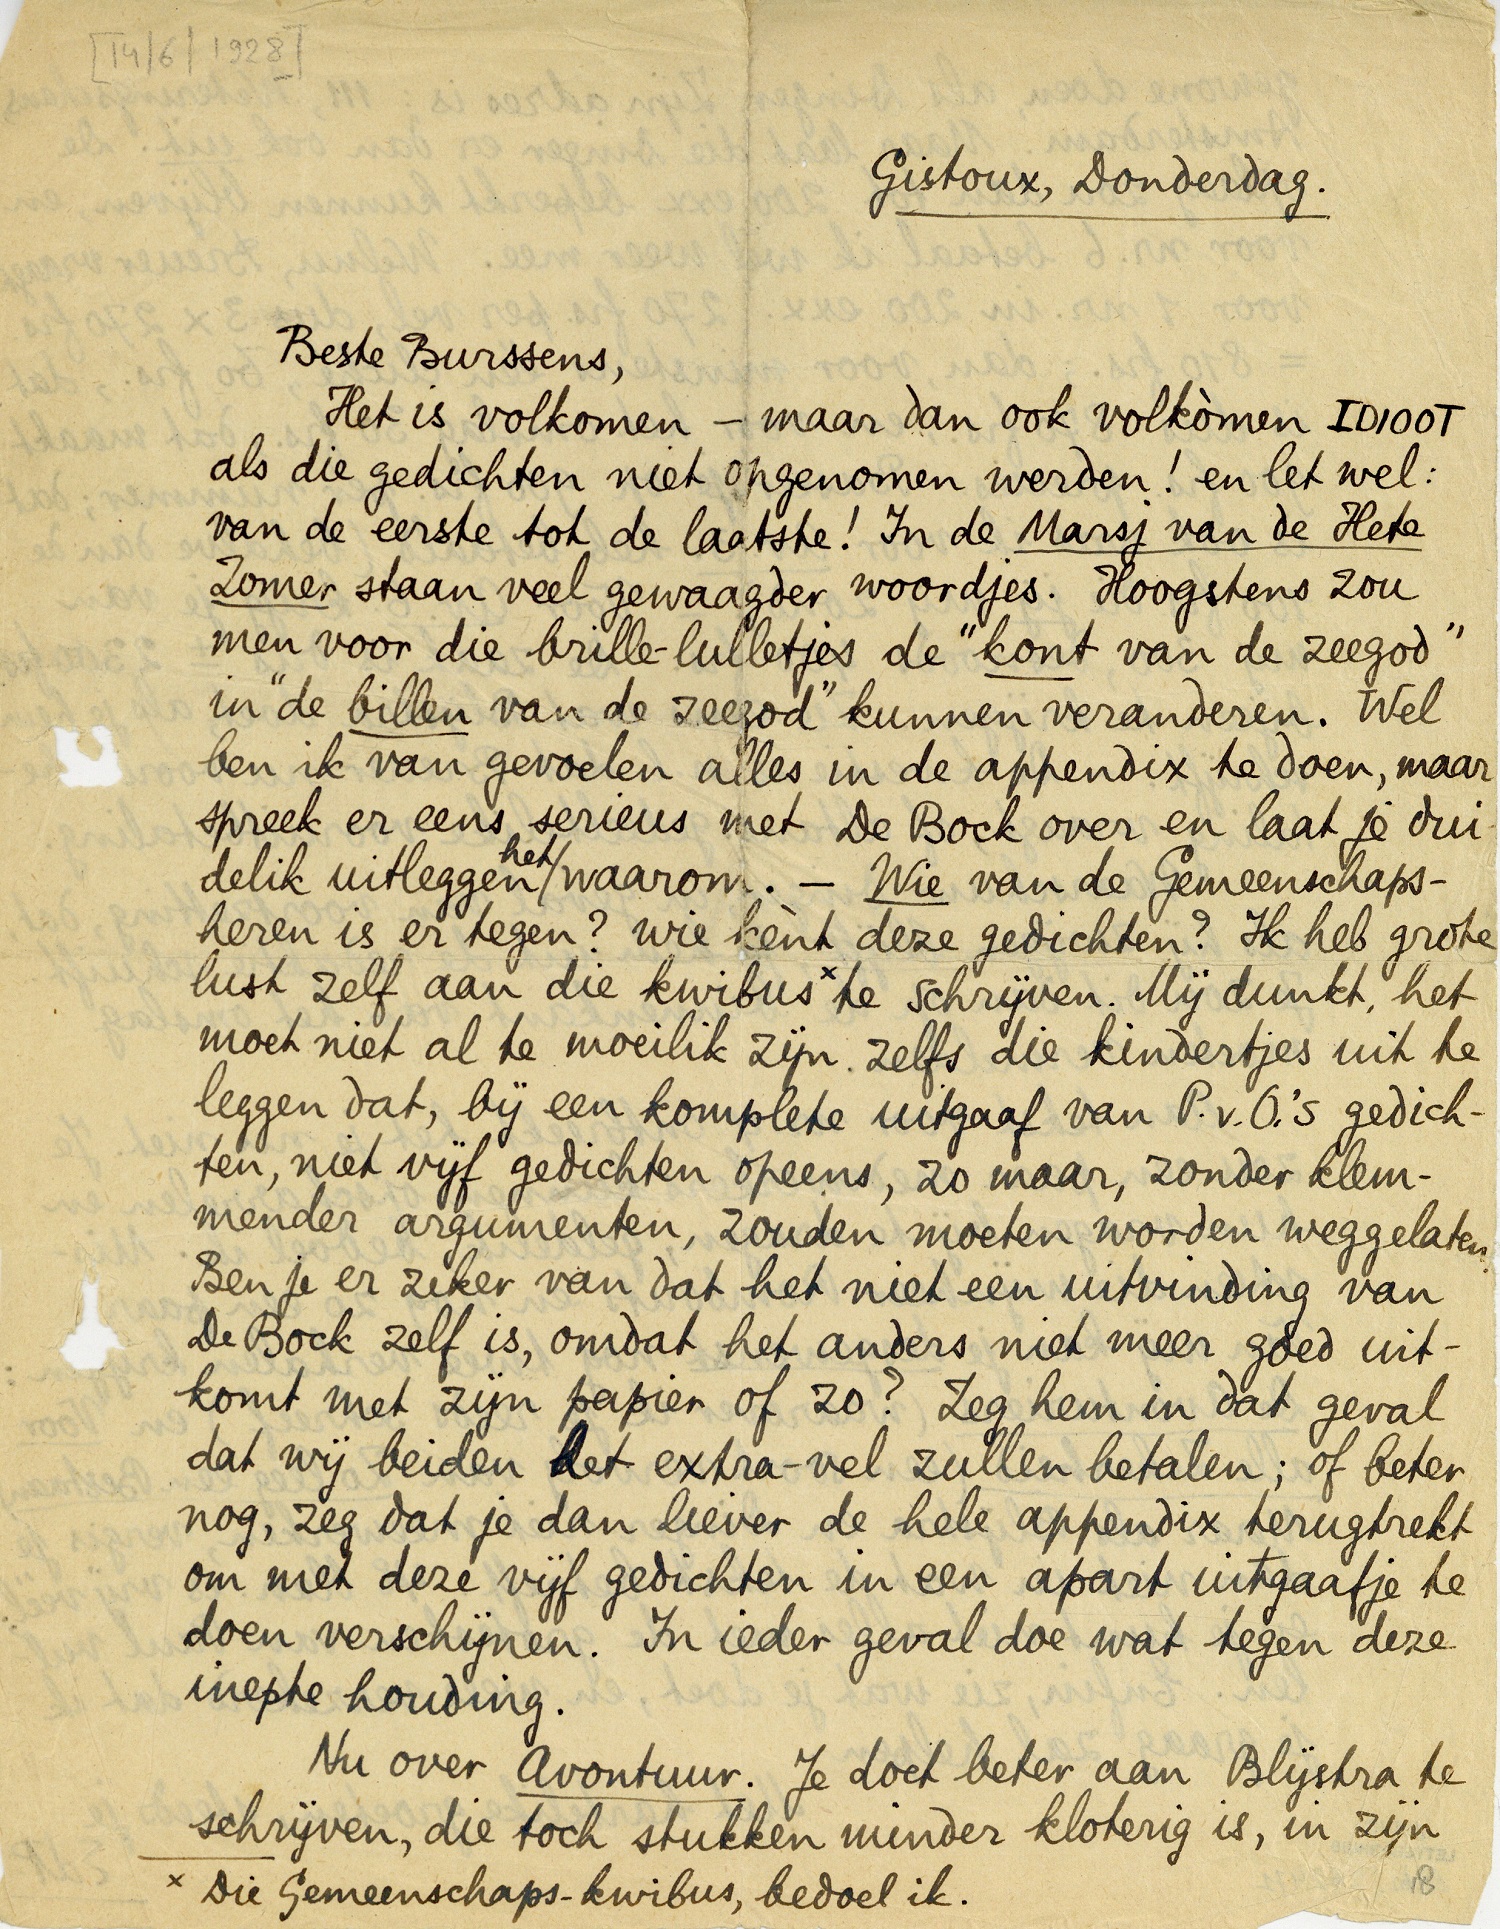 [14/6/1928]
Gistoux, Donderdag.
Beste Burssens,
Het is volkomen – maar dan ook volkòmen IDIOOT
als die gedichten niet opgenomen werden! en let wel:
van de eerste tot de laatste! In de Marsj van de Hete
Zomer staan veel gewaagder woordjes. Hoogstens zou
men voor die brille-lulletjes de "kont van de zeegod"
in "de billen van de zeegod" kunnen veranderen. Wel
ben ik van gevoelen alles in de appendix te doen, maar
spreek er eens serieus met De Bock over en laat je dui-
delik uitleggen het waarom. – Wie van de Gemeenschaps-
heren is er tegen? wie kènt deze gedichten? Ik heb grote
lust zelf aan die kwibus x te schrijven. Mij dunkt, het
moet niet al te moeilik zijn zelfs die kindertjes uit te
leggen dat, bij een komplete uitgaaf van P.v.O.'s gedich-
ten, niet vijf gedichten opeens, zo maar, zonder klem-
mender argumenten, zouden moeten worden weggelaten.
Ben je er zeker van dat het niet een uitvinding van
De Bock zelf is, omdat het anders niet meer goed uit-
komt met zijn papier of zo? Zeg hem in dat geval
dat wij beiden het extra-vel zullen betalen; of beter
nog, zeg dat je dan liever de hele appendix terugtrekt
om met deze vijf gedichten in een apart uitgaafje te
doen verschijnen. In ieder geval doe wat tegen deze
inepte houding.
Nu over Avontuur. Je doet beter aan Blijstra te
schrijven, die toch stukken minder kloterig is, in zijn
x Die Gemeenschaps-kwibus, bedoel ik.
18